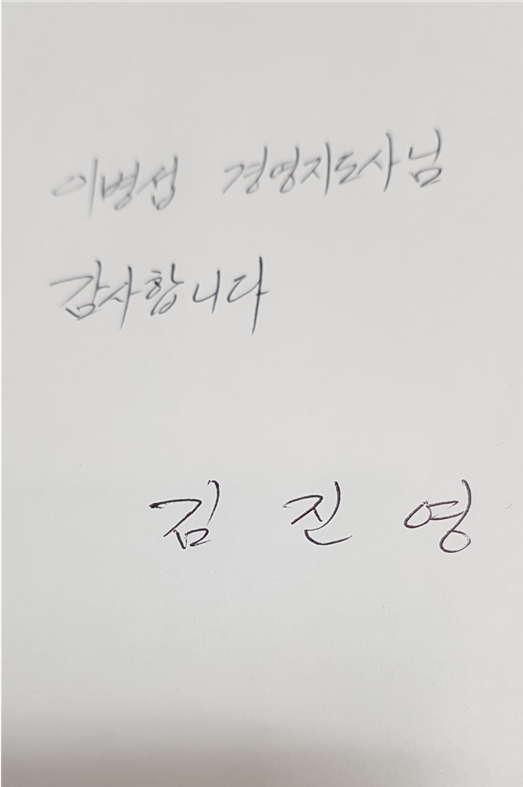 이병섭 경영지도사님
감사합니다
김 진 영